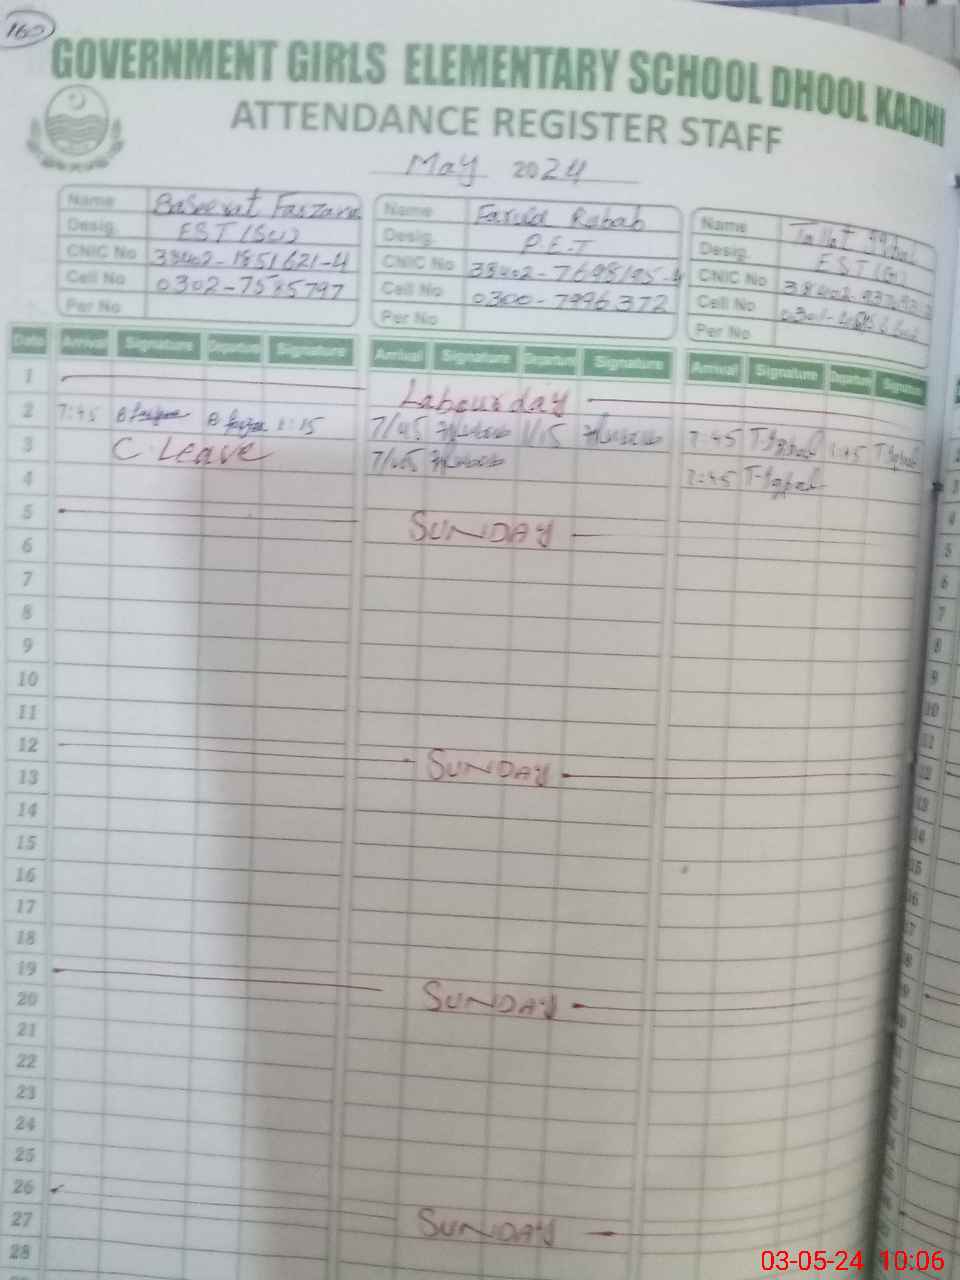 160
GOVERNMENT GIRLS ELEMENTARY SCHOOL DHOOL KADHI
ATTENDANCE REGISTER STAFF
May 2024
Name Baseerat Farzana
Desig. EST (Sci)
CNIC No 38402-1851621-4
Cell No 0302-7585797
Per No
Name Farida Rabab
Desig. P.E.T
CNIC No 38402-7698195-4
Cell No 0300-7996372
Per No
Name Iqbal
Desig. EST
CNIC No 38402-
Cell No 0301-
Per No
Date Arrival Signature Departure Signature Arrival Signature Departure Signature Arrival Signature Departure Signature
1 Labour day
2 7:45 1:15 7/45 1/15 7:45 T-Iqbal 1:45 T-Iqbal
3 C. Leave 7/45 7:45 T-Iqbal
4
5 SUNDAY
6
7
8
9
10
11
12 SUNDAY
13
14
15
16
17
18
19 SUNDAY
20
21
22
23
24
25
26 SUNDAY
27
28
03-05-24 10:06